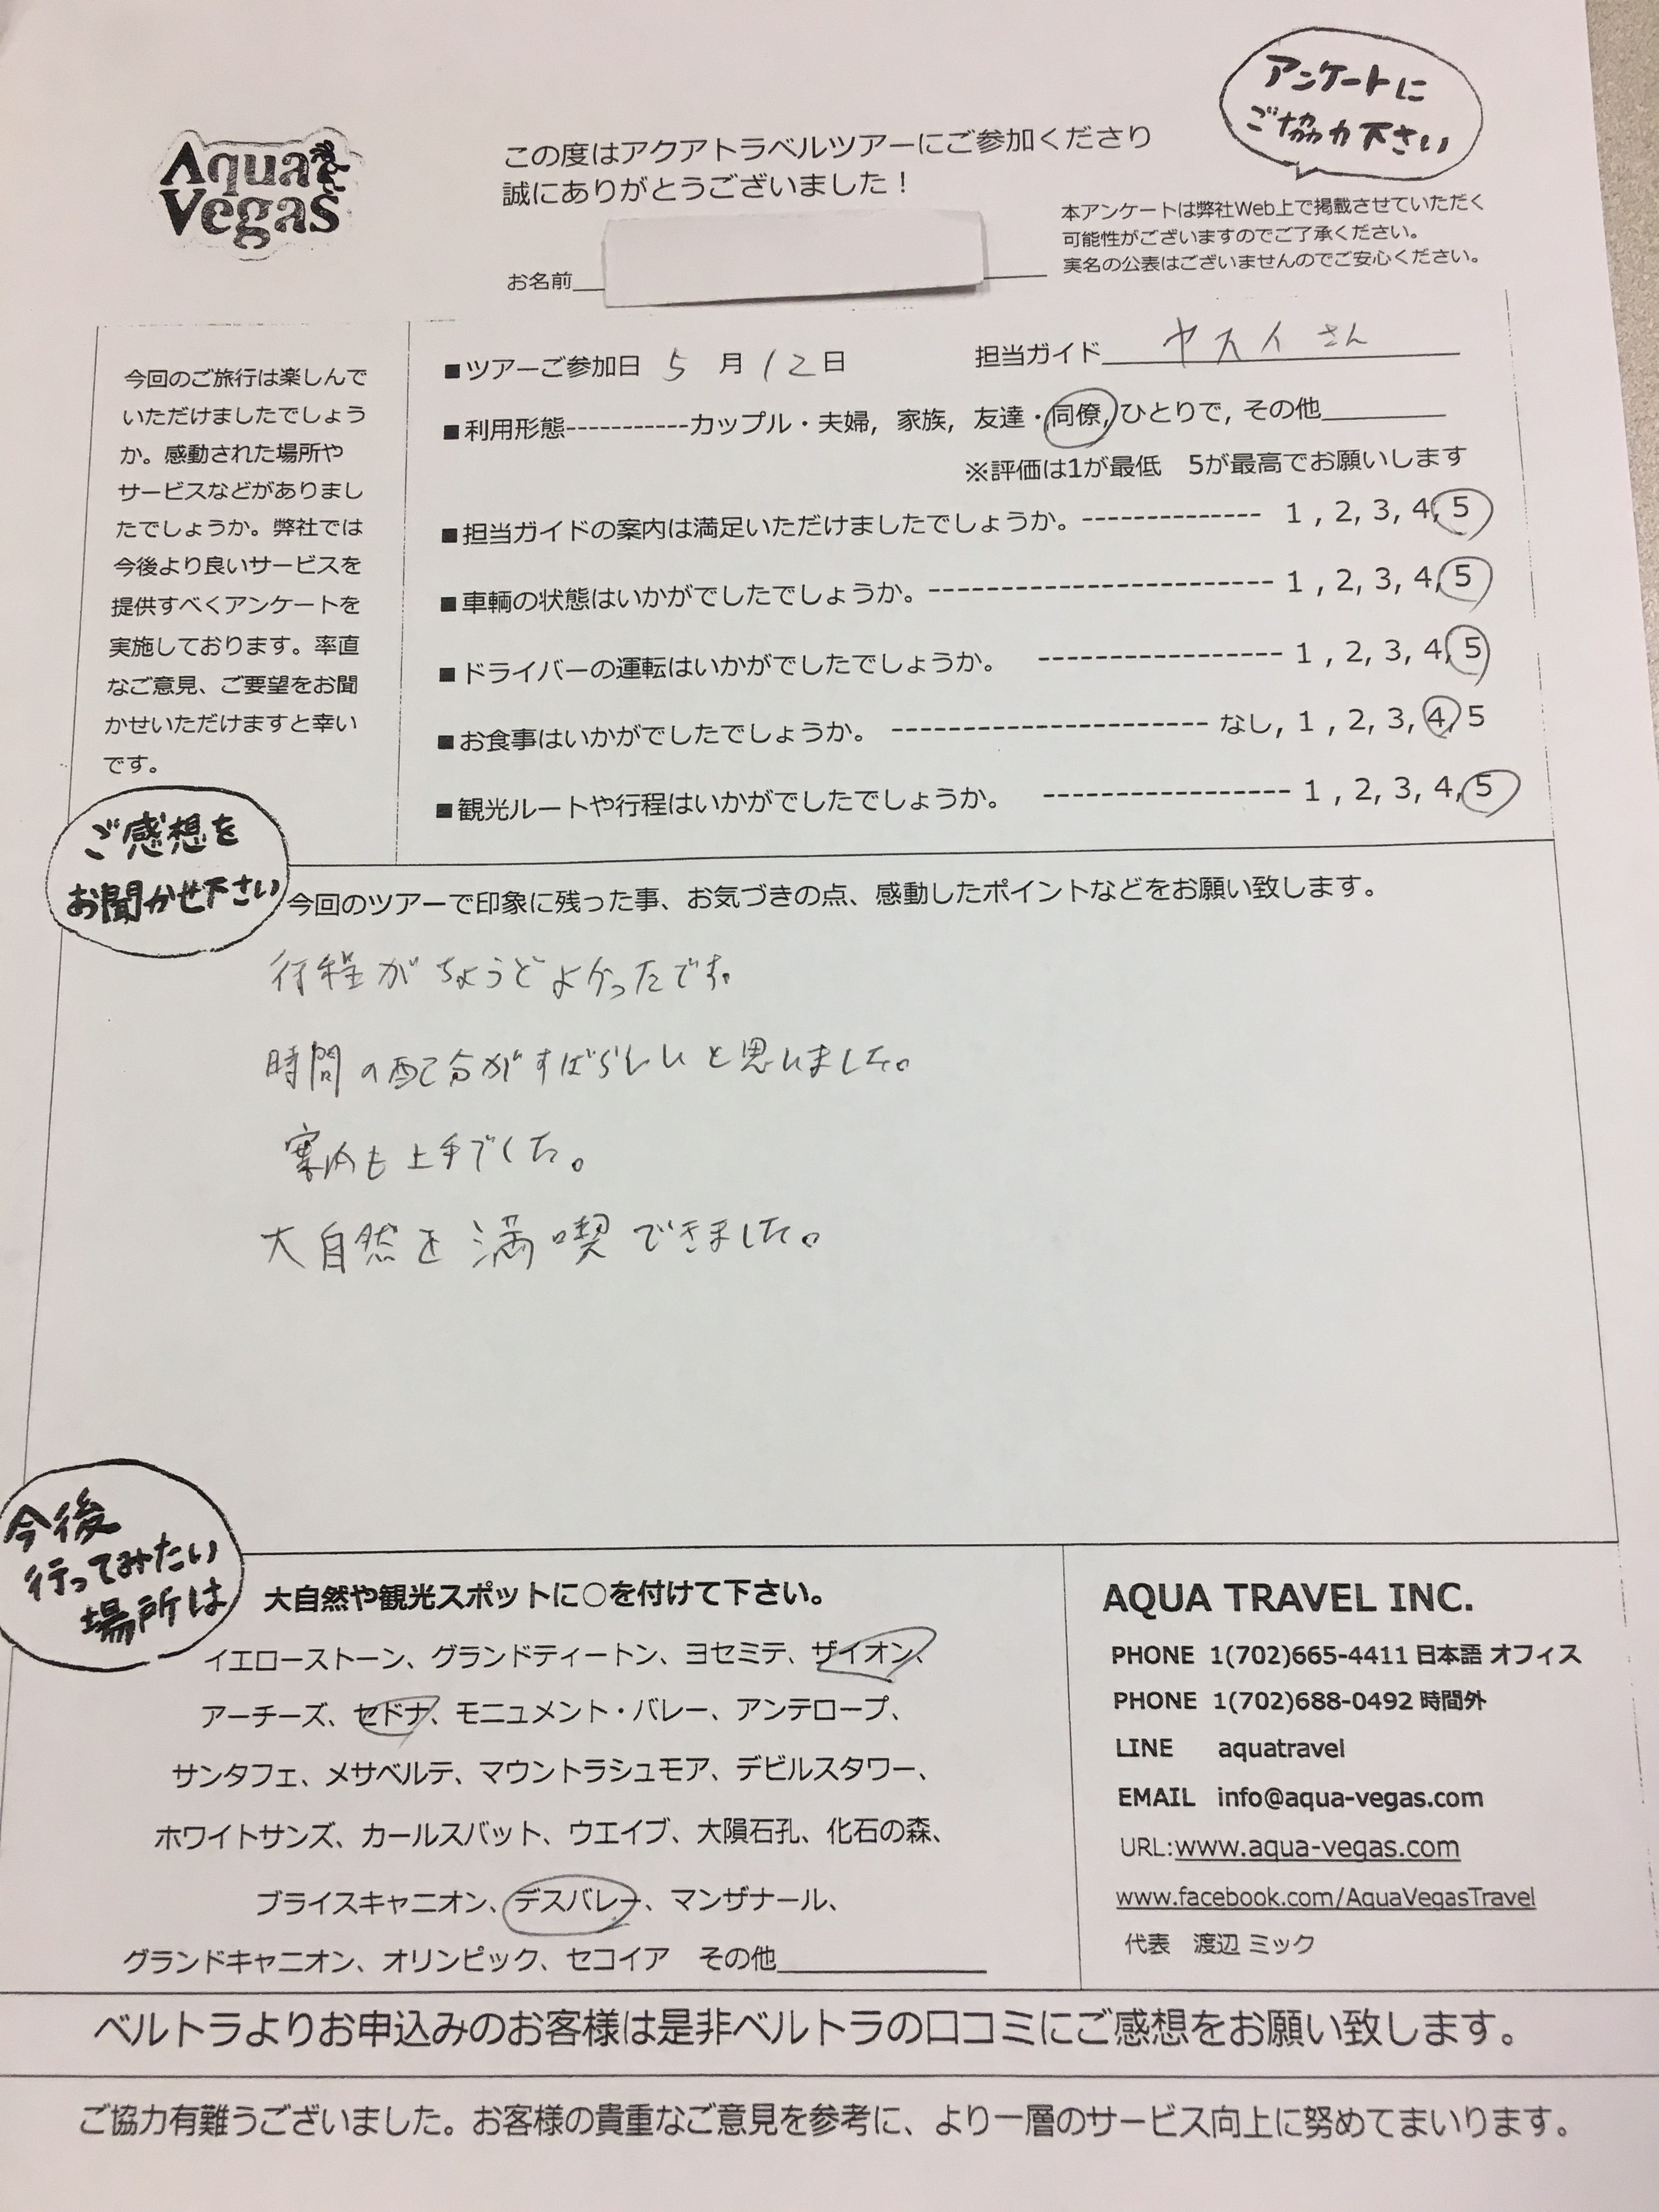 アンケートに
ご協力下さい
Aqua
Vegas
この度はアクアトラベルツアーにご参加くださり
誠にありがとうございました！
本アンケートは弊社Web上で掲載させていただく
可能性がございますのでご了承ください。
実名の公表はございませんのでご安心ください。
お名前
今回のご旅行は楽しんで
いただけましたでしょう
か。感動された場所や
サービスなどがありまし
たでしょうか。弊社では
今後より良いサービスを
提供すべくアンケートを
実施しております。率直
なご意見、ご要望をお聞
かせいただけますと幸い
です。
■ツアーご参加日 5 月 12 日 担当ガイド ヤスイさん
■利用形態-----------カップル・夫婦, 家族, 友達・同僚, ひとりで, その他________
※評価は1が最低 5が最高でお願いします
■担当ガイドの案内は満足いただけましたでしょうか。-------------- 1 , 2, 3, 4, 5
■車輌の状態はいかがでしたでしょうか。------------------------ 1 , 2, 3, 4, 5
■ドライバーの運転はいかがでしたでしょうか。 ----------------- 1 , 2, 3, 4, 5
■お食事はいかがでしたでしょうか。 ---------------------- なし, 1 , 2, 3, 4, 5
■観光ルートや行程はいかがでしたでしょうか。 ----------------- 1 , 2, 3, 4, 5
ご感想を
お聞かせ下さい
今回のツアーで印象に残った事、お気づきの点、感動したポイントなどをお願い致します。
行程がちょうどよかったです。
時間の配分がすばらしいと思いました。
案内も上手でした。
大自然を満喫できました。
今後
行ってみたい
場所は
大自然や観光スポットに○を付けて下さい。
イエローストーン、グランドティートン、ヨセミテ、ザイオン、
アーチーズ、セドナ、モニュメント・バレー、アンテロープ、
サンタフェ、メサベルテ、マウントラシュモア、デビルスタワー、
ホワイトサンズ、カールスバット、ウエイブ、大隕石孔、化石の森、
ブライスキャニオン、デスバレー、マンザナール、
グランドキャニオン、オリンピック、セコイア その他____________
AQUA TRAVEL INC.
PHONE 1(702)665-4411 日本語 オフィス
PHONE 1(702)688-0492 時間外
LINE aquatravel
EMAIL info@aqua-vegas.com
URL:www.aqua-vegas.com
www.facebook.com/AquaVegasTravel
代表 渡辺 ミック
ベルトラよりお申込みのお客様は是非ベルトラの口コミにご感想をお願い致します。
ご協力有難うございました。お客様の貴重なご意見を参考に、より一層のサービス向上に努めてまいります。